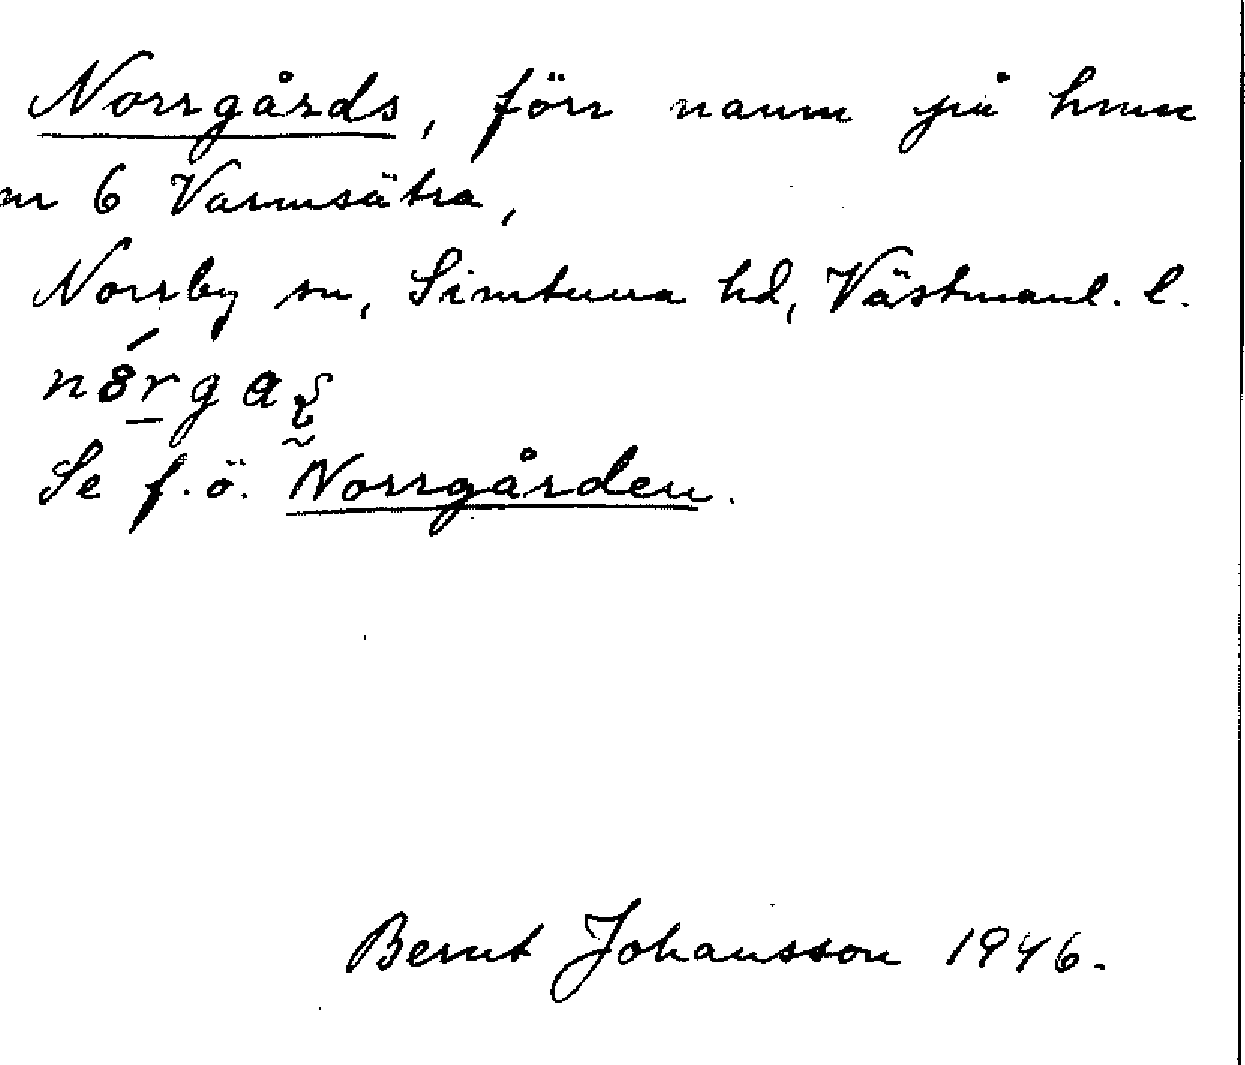 Norrgårds, förr namn på hmn
nr 6 Varmsätra,
Norrby sn, Simtuna hd, Västmanl. l.
Se f.ö. Norrgården.
Bernt Johansson 1946.